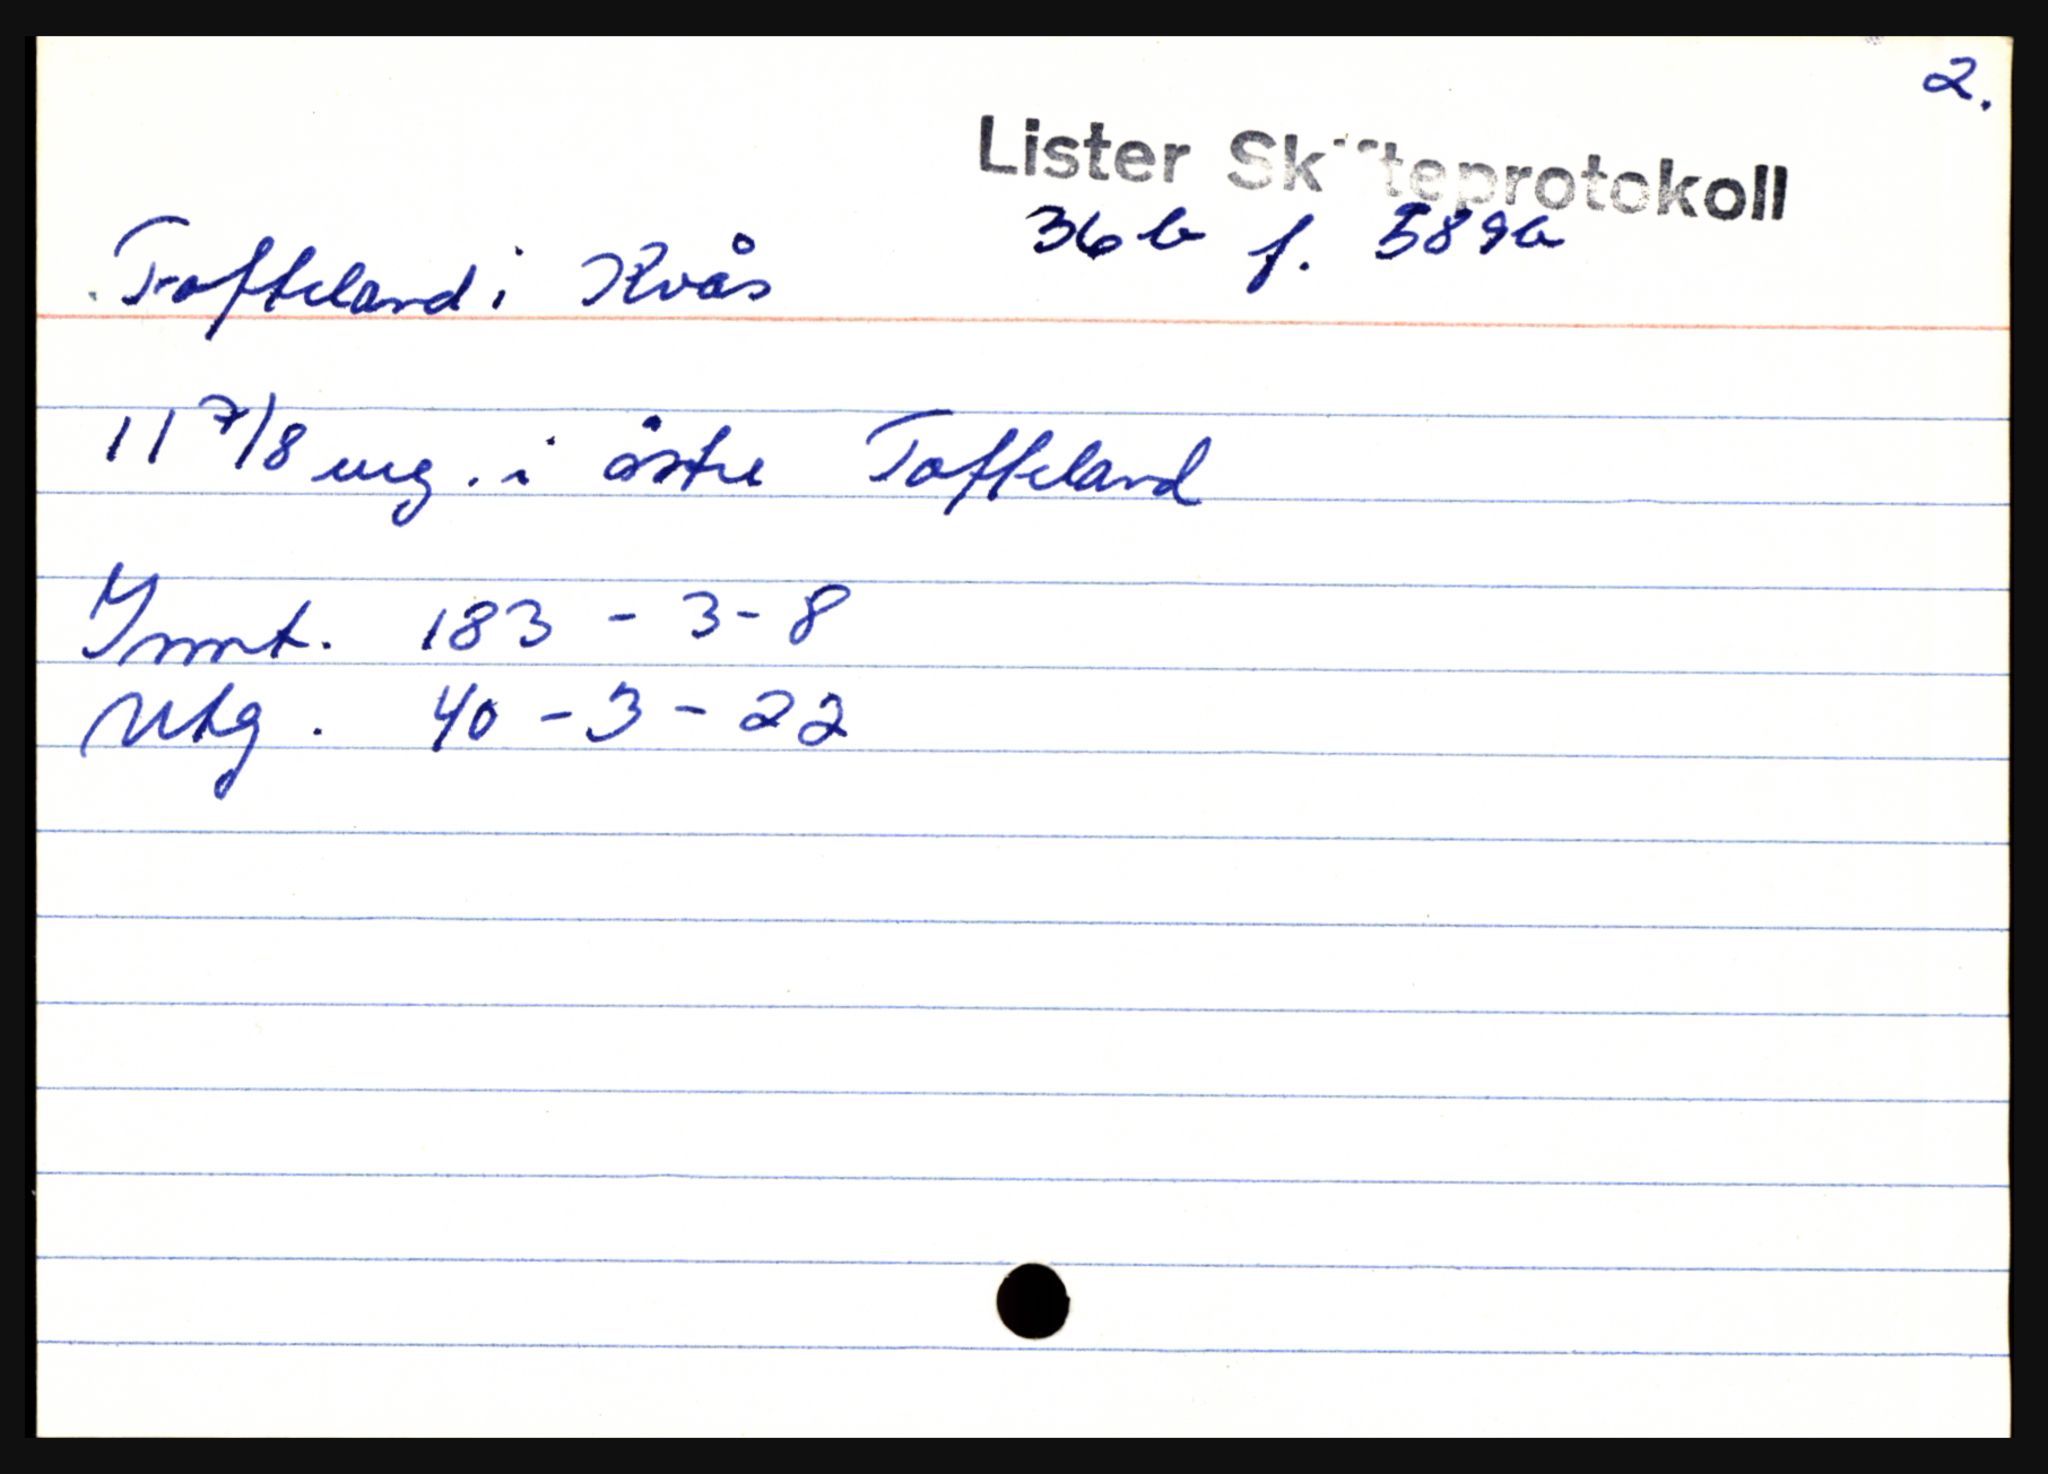 2.
Lister Skifteprotokoll
36 b f. 589b
Tofteland i Kvås
11 7/8 mg. i østre Tofteland
Innt. 183 - 3 - 8
Utg. 40 - 3 - 22